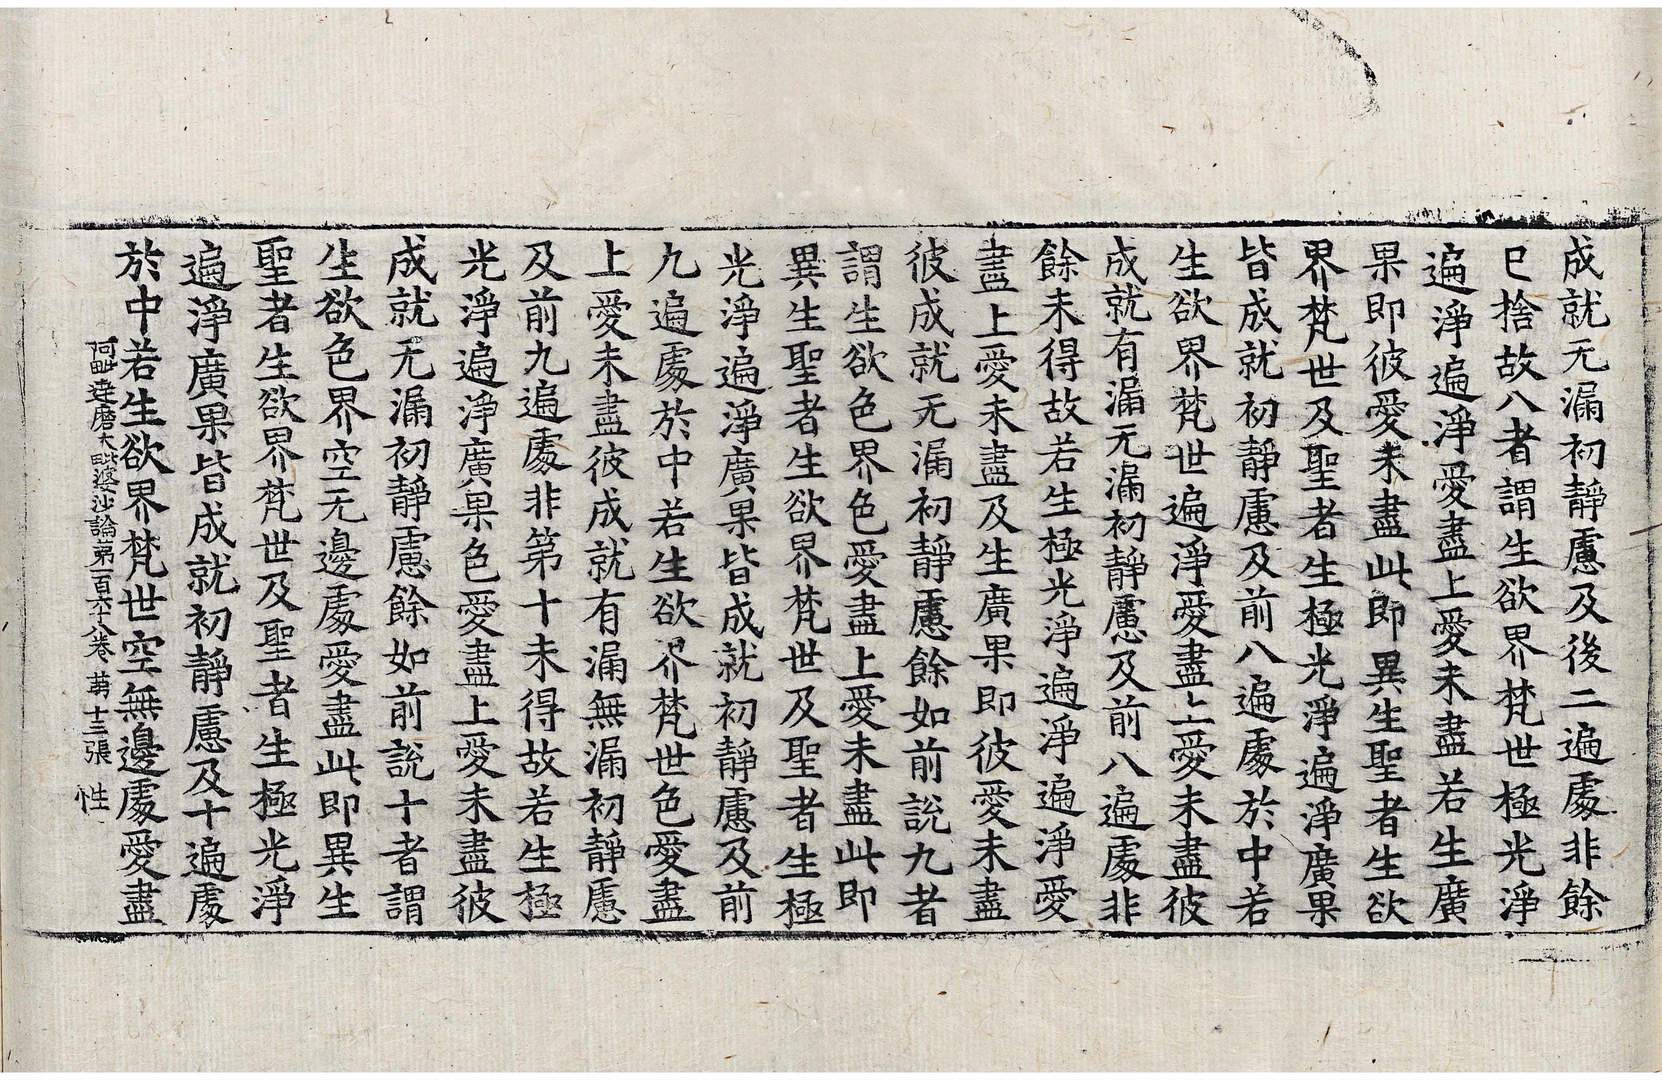 成就无漏初靜慮及後二遍處非餘
已捨故八者謂生欲界梵世極光淨
遍淨遍淨愛盡上愛未盡若生廣
果即彼愛未盡此即異生聖者生欲
界梵世及聖者生極光淨遍淨廣果
皆成就初靜慮及前八遍處於中若
生欲界梵世遍淨愛盡上愛未盡彼
成就有漏无漏初靜慮及前八遍處非
餘未得故若生極光淨遍淨遍淨愛
盡上愛未盡及生廣果即彼愛未盡
彼成就无漏初靜慮餘如前說九者
謂生欲色界色愛盡上愛未盡此即
異生聖者生欲界梵世及聖者生極
光淨遍淨廣果皆成就初靜慮及前
九遍處於中若生欲界梵世色愛盡
上愛未盡彼成就有漏無漏初靜慮
及前九遍處非第十未得故若生極
光淨遍淨廣果色愛盡上愛未盡彼
成就无漏初靜慮餘如前說十者謂
生欲色界空无邊處愛盡此即異生
聖者生欲界梵世及聖者生極光淨
遍淨廣果皆成就初靜慮及十遍處
於中若生欲界梵世空無邊處愛盡
阿毗達磨大毗婆沙論第一百六十八卷 第十三張 性